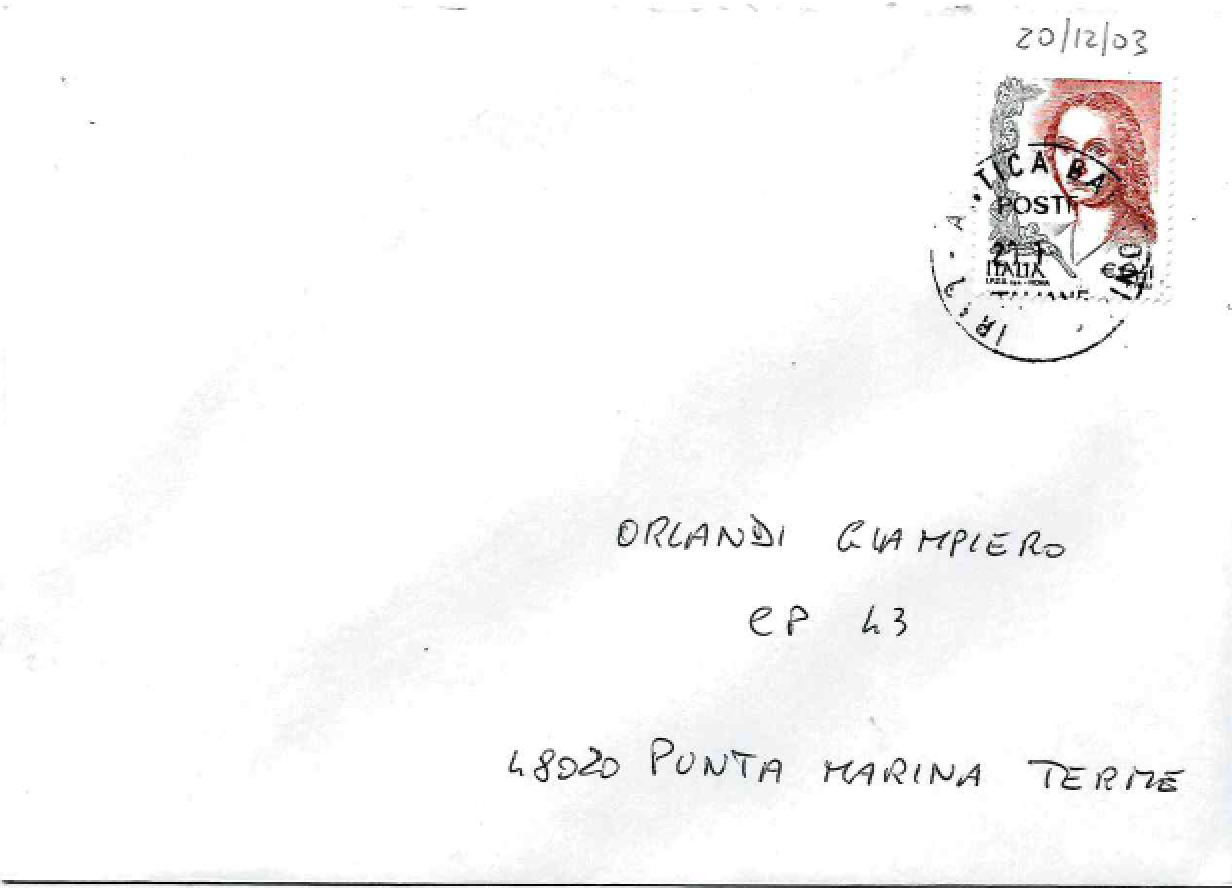 20/12/03
TICA BA
POSTE
ITALIA
I.P.Z.S. S.p.A. - ROMA
ORLANDI GIAMPIERO
CP 43
48020 PUNTA MARINA TERME